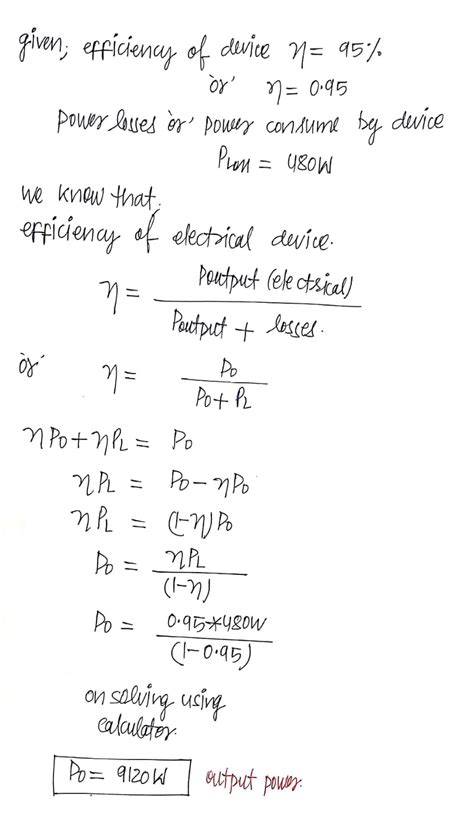 given; efficiency of device η = 95%
or η = 0.95
power losses or power consume by device
Ploss = 480W
we know that,
efficiency of electrical device.
η = Poutput (electrical) / Poutput + losses.
or η = Po / Po + PL
ηPo + ηPL = Po
ηPL = Po - ηPo
ηPL = (1-η)Po
Po = ηPL / (1-η)
Po = 0.95*480W / (1-0.95)
on solving using
calculator.
Po = 9120W output power.